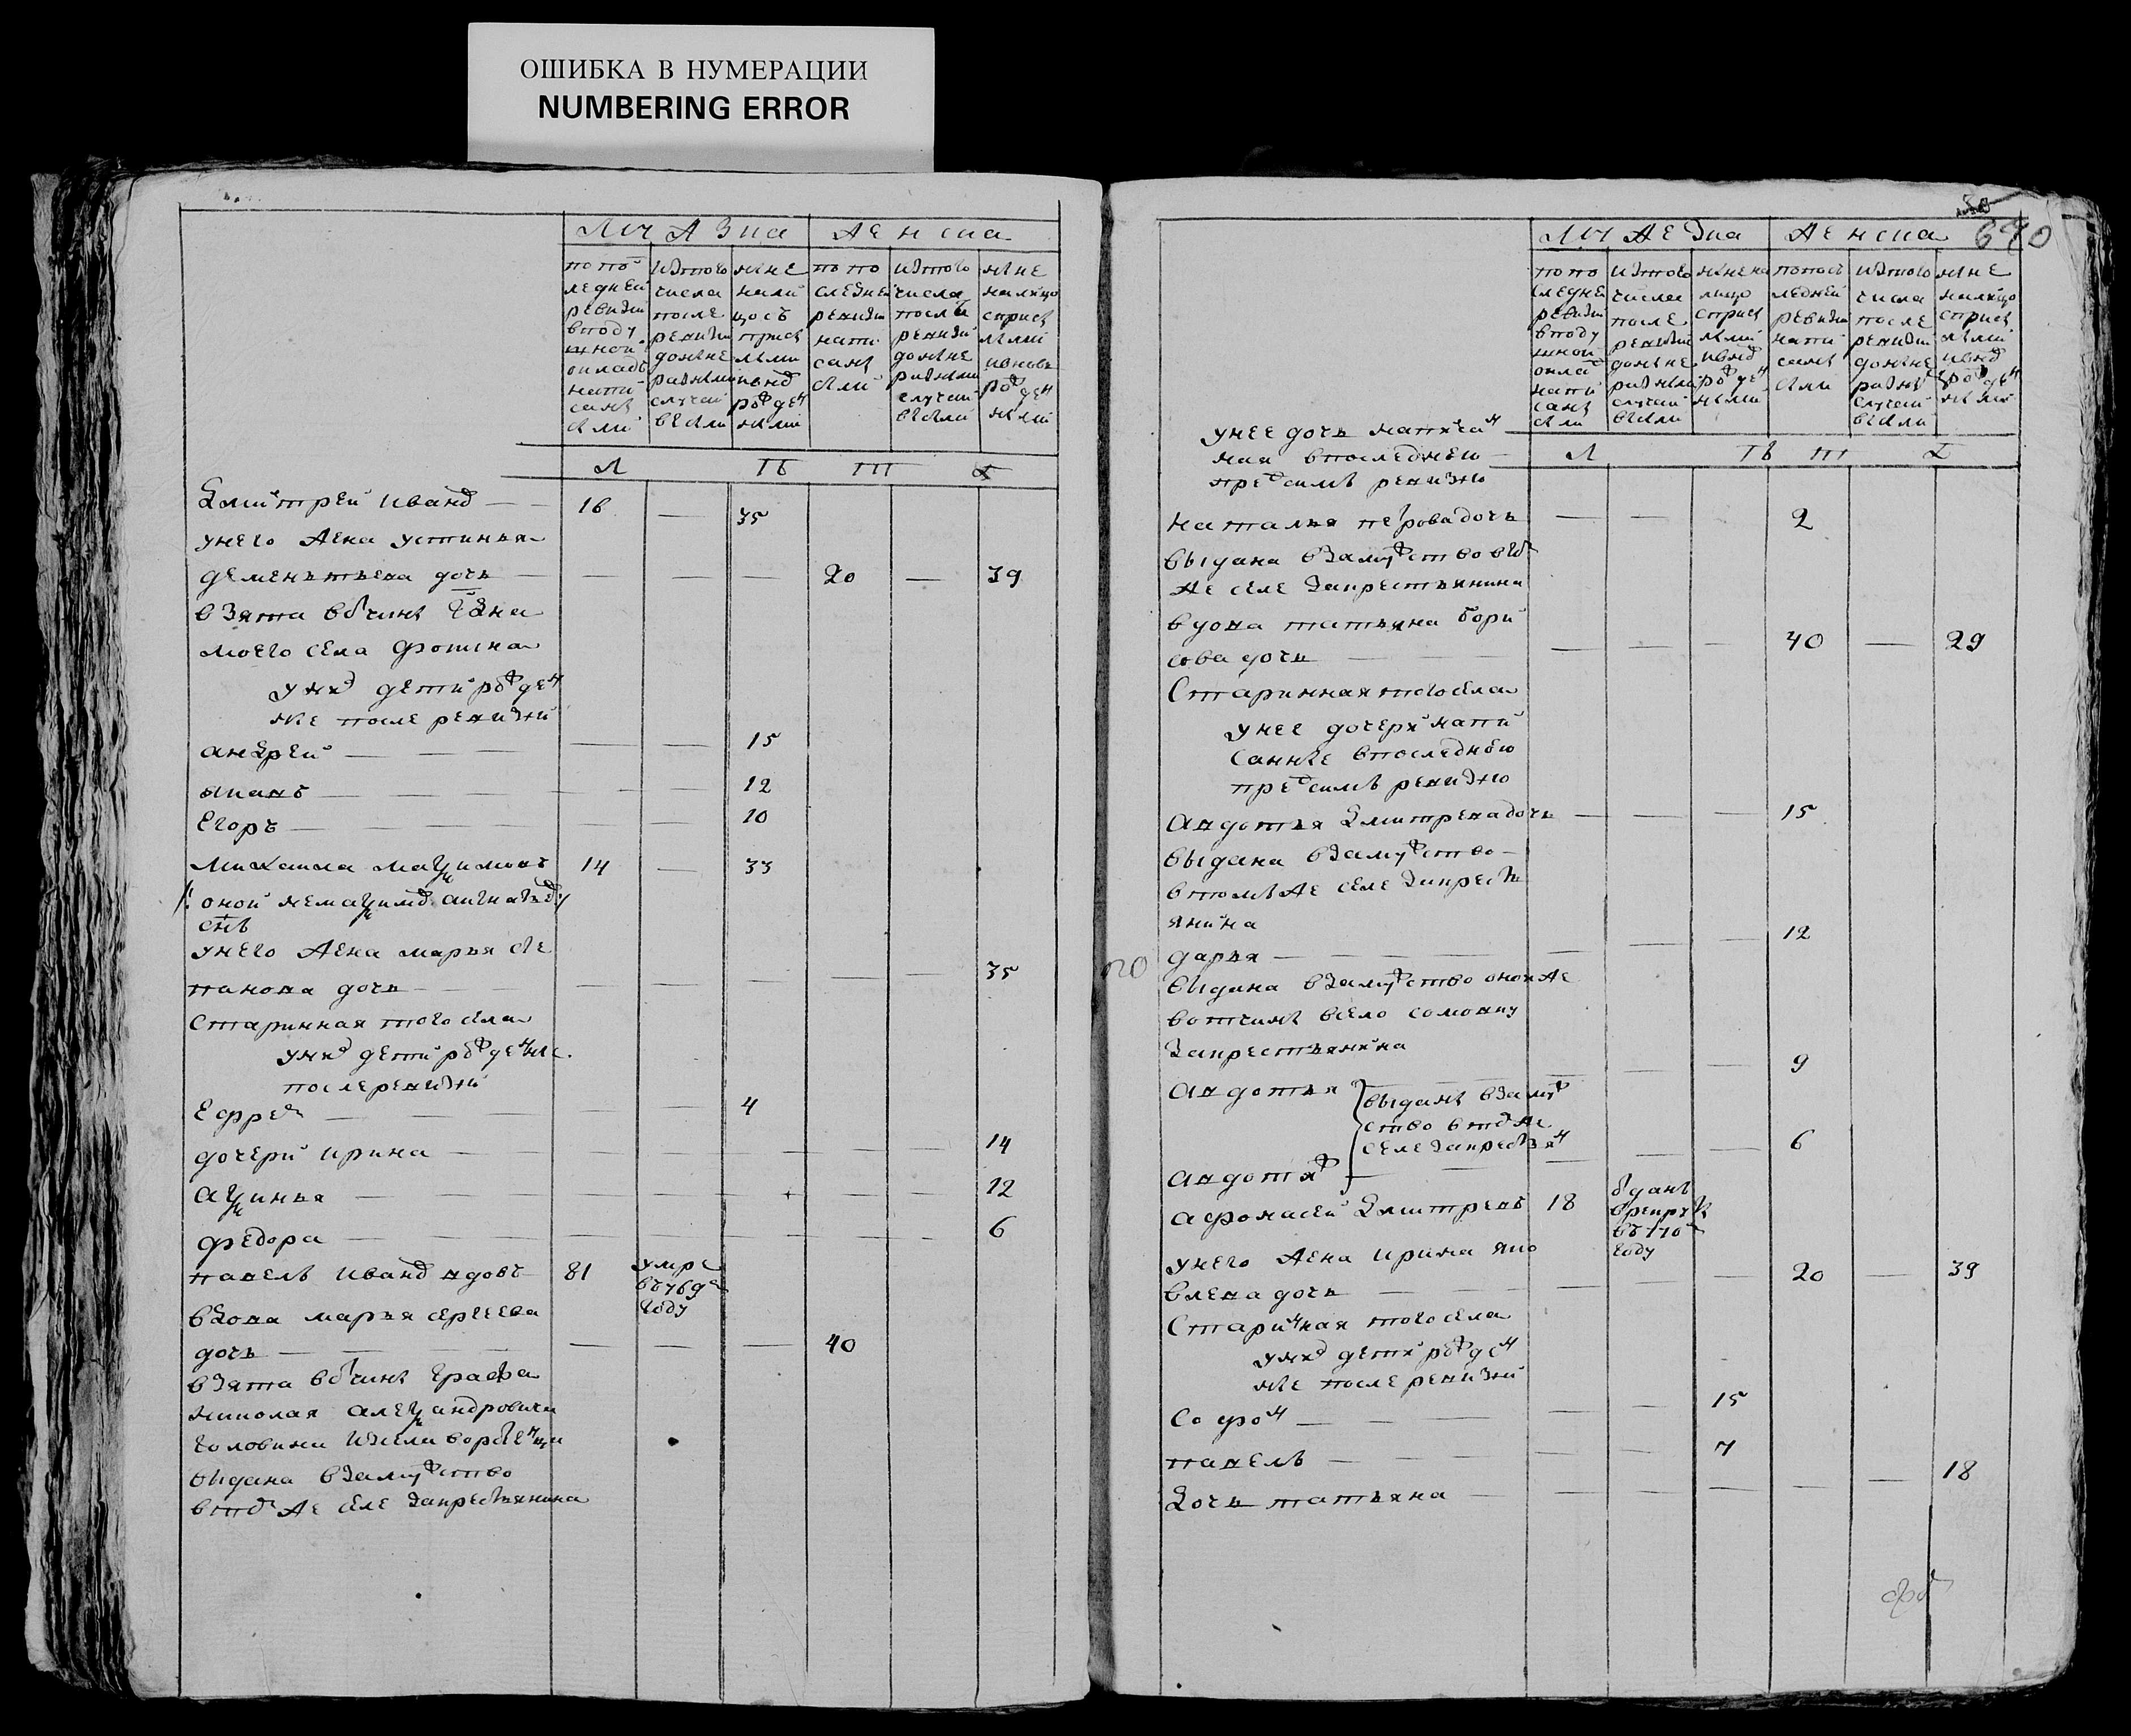 ОШИБКА В НУМЕРАЦИИ
NUMBERING ERROR
Мужеска
Женска
по по
следней
ревизии
в поду
шной
окладъ
напи
саны
были
изтого
числа
после
ревизии
до ныне
разными
случаи
выбыли
ныне
нали
цо съ
прибы
лыми
и внов
рожден
ными
по по
следней
ревизии
напи
саны
были
изтого
числа
после
ревизии
до ныне
разными
случаи
выбыли
ныне
на лицо
с прибы
лыми
и вновь
рожден
ными
л ть ть
Дмитрей иванов — 16 — 35
унего жена устинья
дементьева дочь — — — — 20 — 39
взята вотчины
моего села фотина
уних дети рожден
ные после ревизии
андрей — — — 15
иванъ — — — 12
Егоръ — — — 10
михаила мацимовъ 14 — 33
оной немацимов
сынъ
унего жена марья сте
панова дочь — — — — — — 35
Старинная того села
уних дети рожденые
после ревизии
Ефрем — — — 4
дочери ирина — — — — — 14
ацинья — — — — — 12
федора — — — — — 6
павелъ иванов вдовъ 81 умре
в 769 м
году
вдова марья сергеева
дочь — — — — 40
взята вотчины графа
николая алецандровича
головина изсела воротенца
выдана взамужство
в том же селе закрестьянина
670
Мужеска
Женска
по по
следней
ревизии
в поду
шной
оклад
напи
саны
были
изтого
числа
после
ревизии
до ныне
разными
случаи
выбыли
ныне на
лицо
с прибы
лыми
и внов
рожден
ными
по пос
ледней
ревизии
напи
саны
были
изтого
числа
после
ревизии
до ныне
разны
случаи
выбыли
ныне
на лицо
с прибы
лыми
и внов
рожден
ными
унее дочь написан
ная впоследнею
пред симъ ревизию
л ть ть
наталья петрова дочь — — 2
выдана взамужство втом
же селе закрестьянина
вдова татьяна бори
сова дочь — — — 40 — 29
Старинная того села
унее дочери напи
санные впоследнюю
пред симъ ревизию
авдотья Дмитрева дочь — — — 15
выдана взамужство
втомъ же селе закресть
янина
дарья — — — 12
выдана взамужство оной же
вотчины всело сомовку
закрестьянина
авдотья — — — 9
выданы взамуж
ство в том же
селе закрестьян
авдотья ж — — — 6
афонасей Дмитревъ 18 отданъ
в рекруты
въ 770 м
году
унего жена ирина яко
влева дочь — — — 20 — 39
Старинная того села
уних дети рожден
ные после ревизии
Софон — — — 15
павелъ — — — 7
Дочь татьяна — — — — — 18